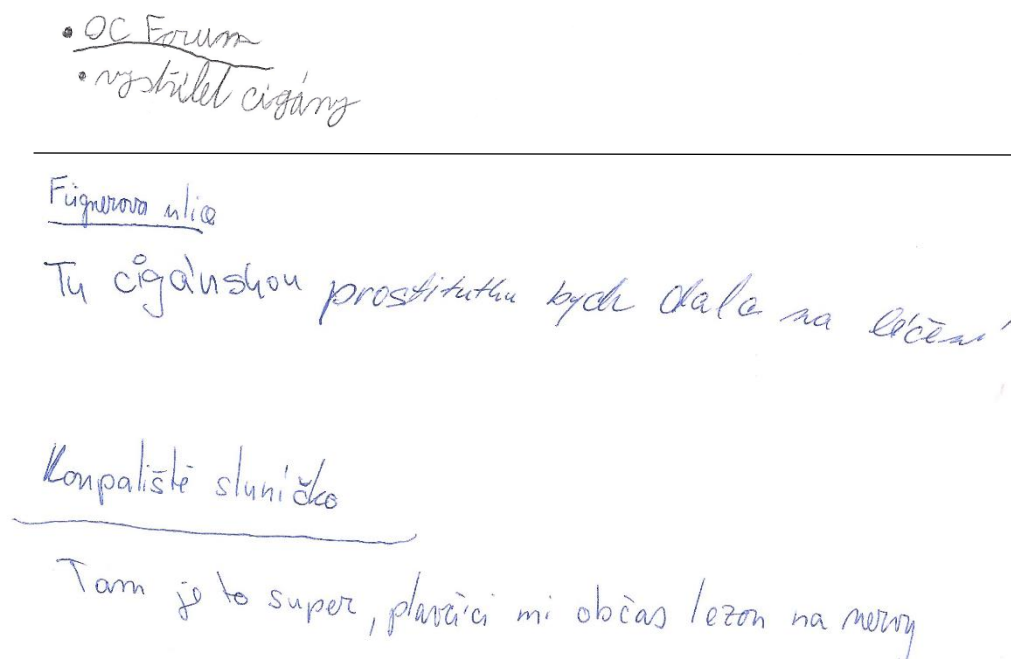 • OC Forum
• vystřílet cigány
Fügnerova ulice
Tu cigánskou prostitutku bych dala na léčení
Koupaliště sluníčko
Tam je to super, plavčíci mi občas lezou na nervy